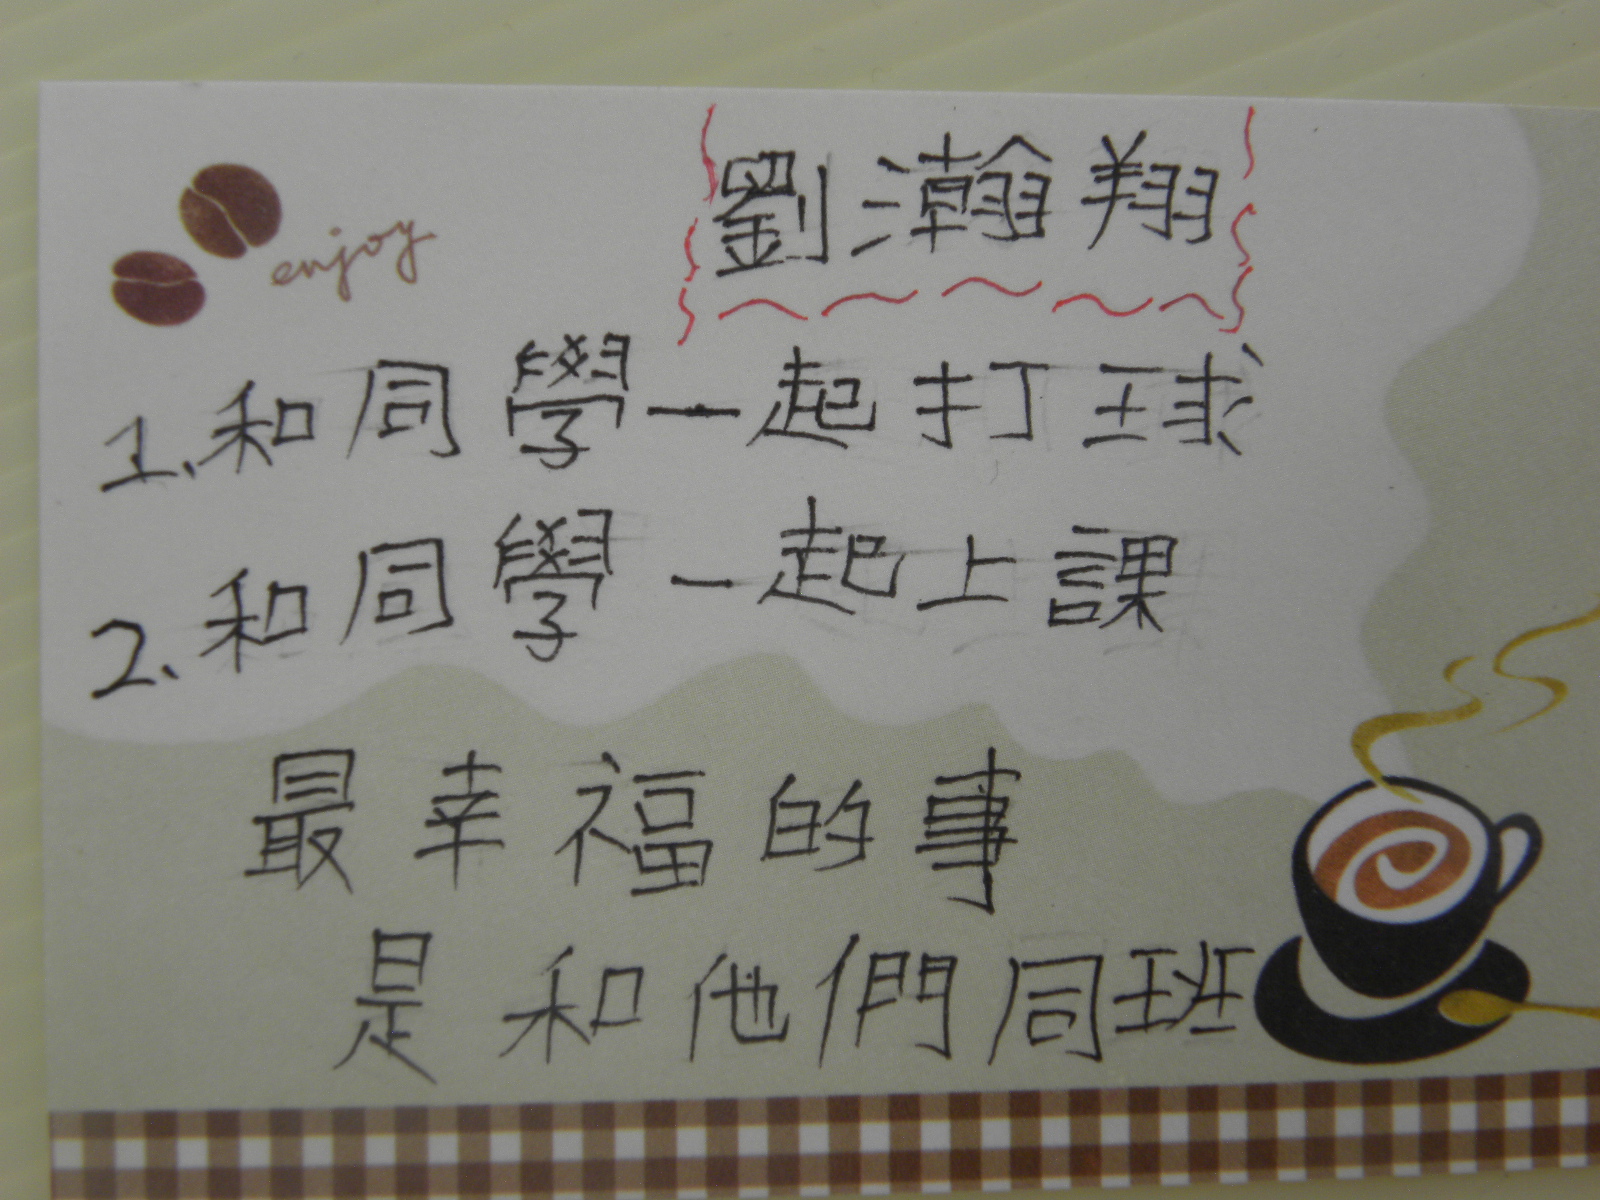 劉瀚翔
enjoy
1.和同學一起打球
2.和同學一起上課
最幸福的事
是和他們同班